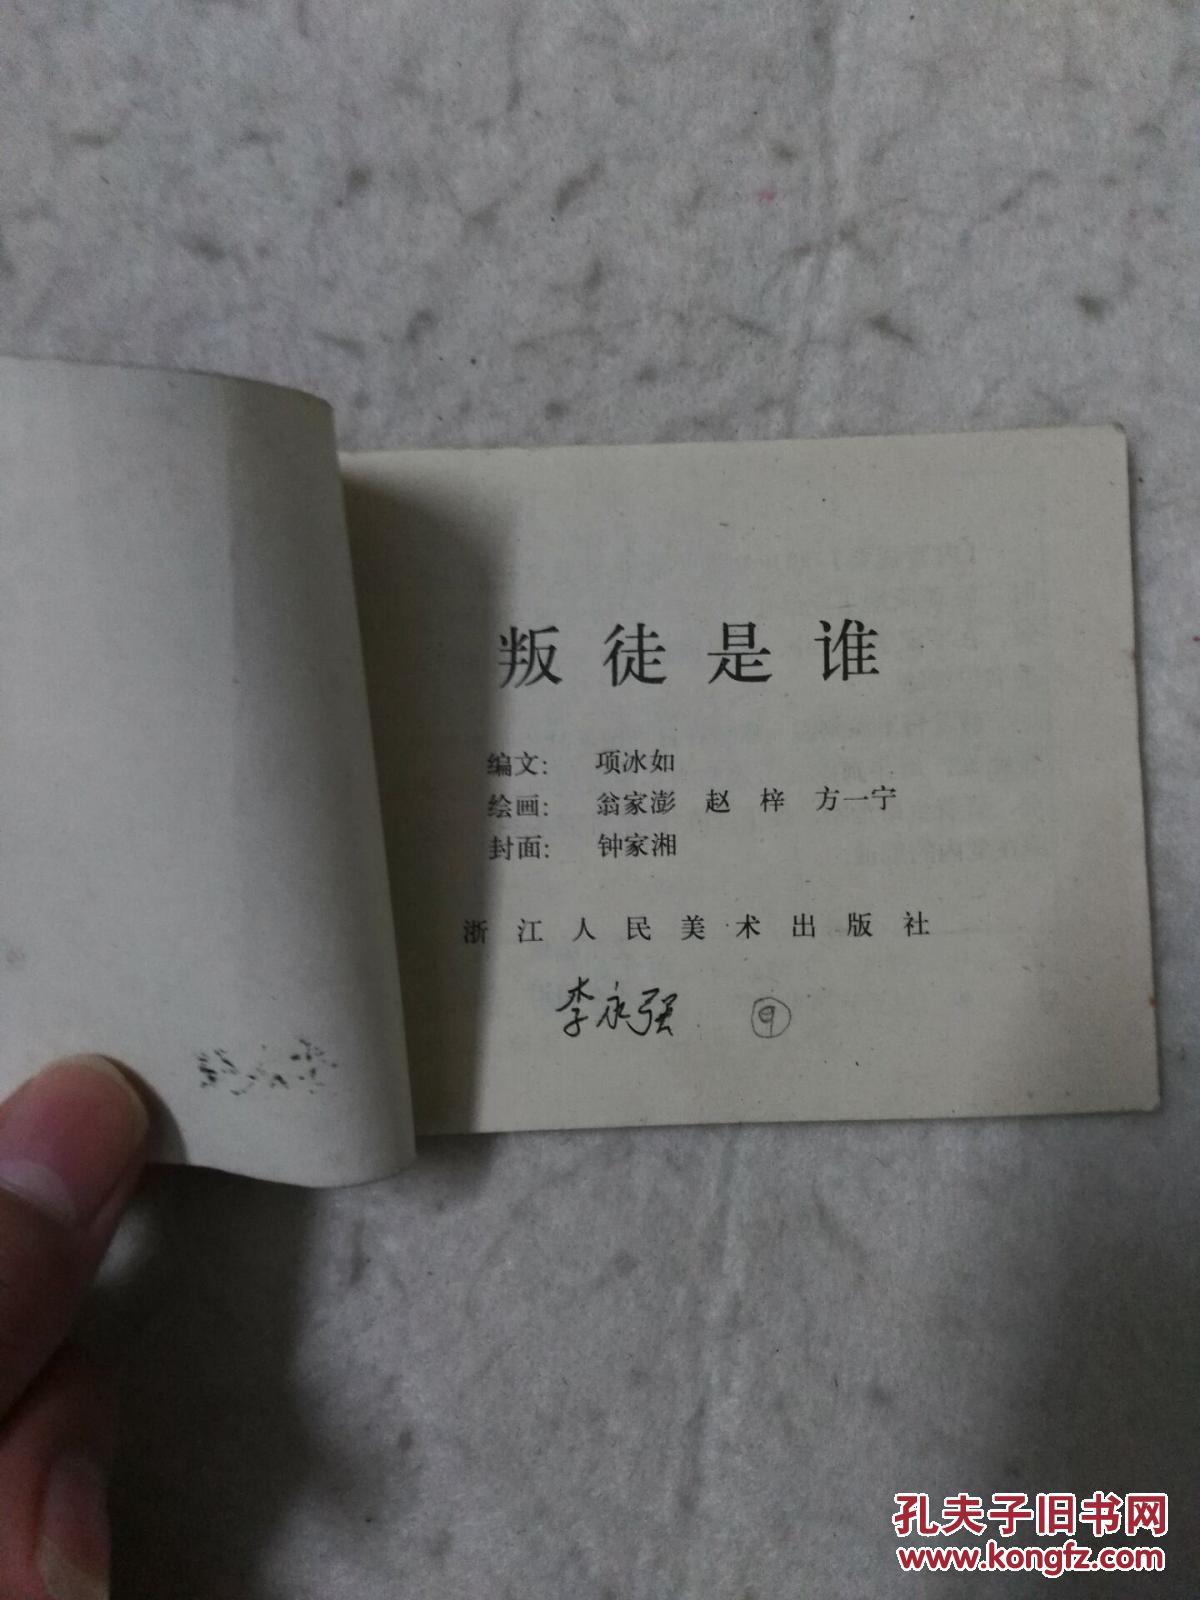 叛徒是谁
编文： 项冰如
绘画： 翁家澎 赵 梓 方一宁
封面： 钟家湘
浙江人民美术出版社
李永强 ⑨
孔夫子旧书网
www.kongfz.com